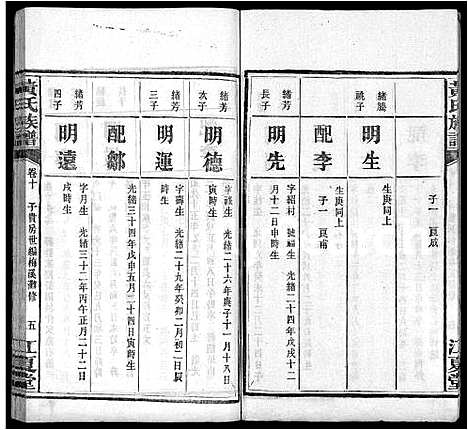 黃氏族譜
江夏堂
子一 夏成
緒勝
祧子
明生
生庚同上
配李
生庚同上
子一 夏甫
緒芳
長子
明先
字紹村 號福生 光緒二十四年戊戌十二
月十二日申時生
緒芳
次子
明德
字福生 光緒二十六年庚子十一月十八日
寅時生
緒芳
三子
明運
字壽生 光緒二十九年癸卯二月初二日辰
時生
配鄒
光緒三十四年戊申五月二十四日寅時生
緒芳
四子
明遠
字月生 光緒三十二年丙午正月二十二日
戌時生
黃氏族譜
卷十 子貴房世編梅溪灘修 五
江夏堂